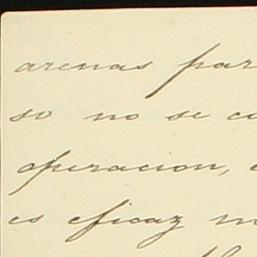 arenas par
so no se co
operacion,
es eficaz m